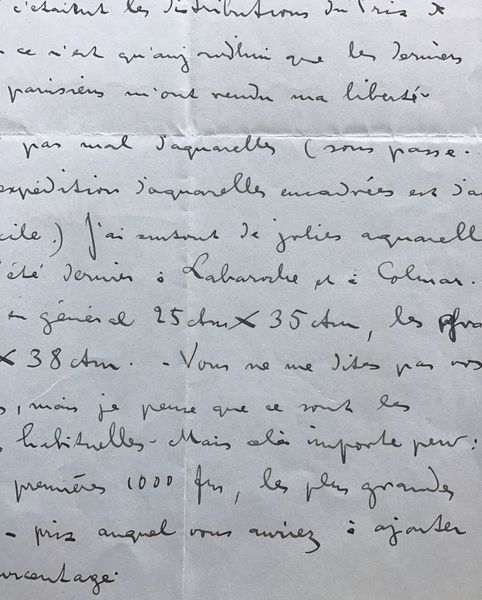 c'étaient les distributions du Prix
ce n'est qu'aujourd'hui que les derniers
parisiens m'ont rendu ma liberté
pas mal d'aquarelles (sous passe.
expédition d'aquarelles encadrées est
cile.) J'ai surtout de jolies aquarell
'été dernier à Labaroche et à Colmar.
en général 25 ctm X 35 ctm, les
X 38 ctm. - Vous ne me dites pas vos
s, mais je pense que ce sont les
habituelles - Mais cela importe peu :
premières 1000 frs, les plus grandes
- prix auquel vous auriez à ajouter
urcentage